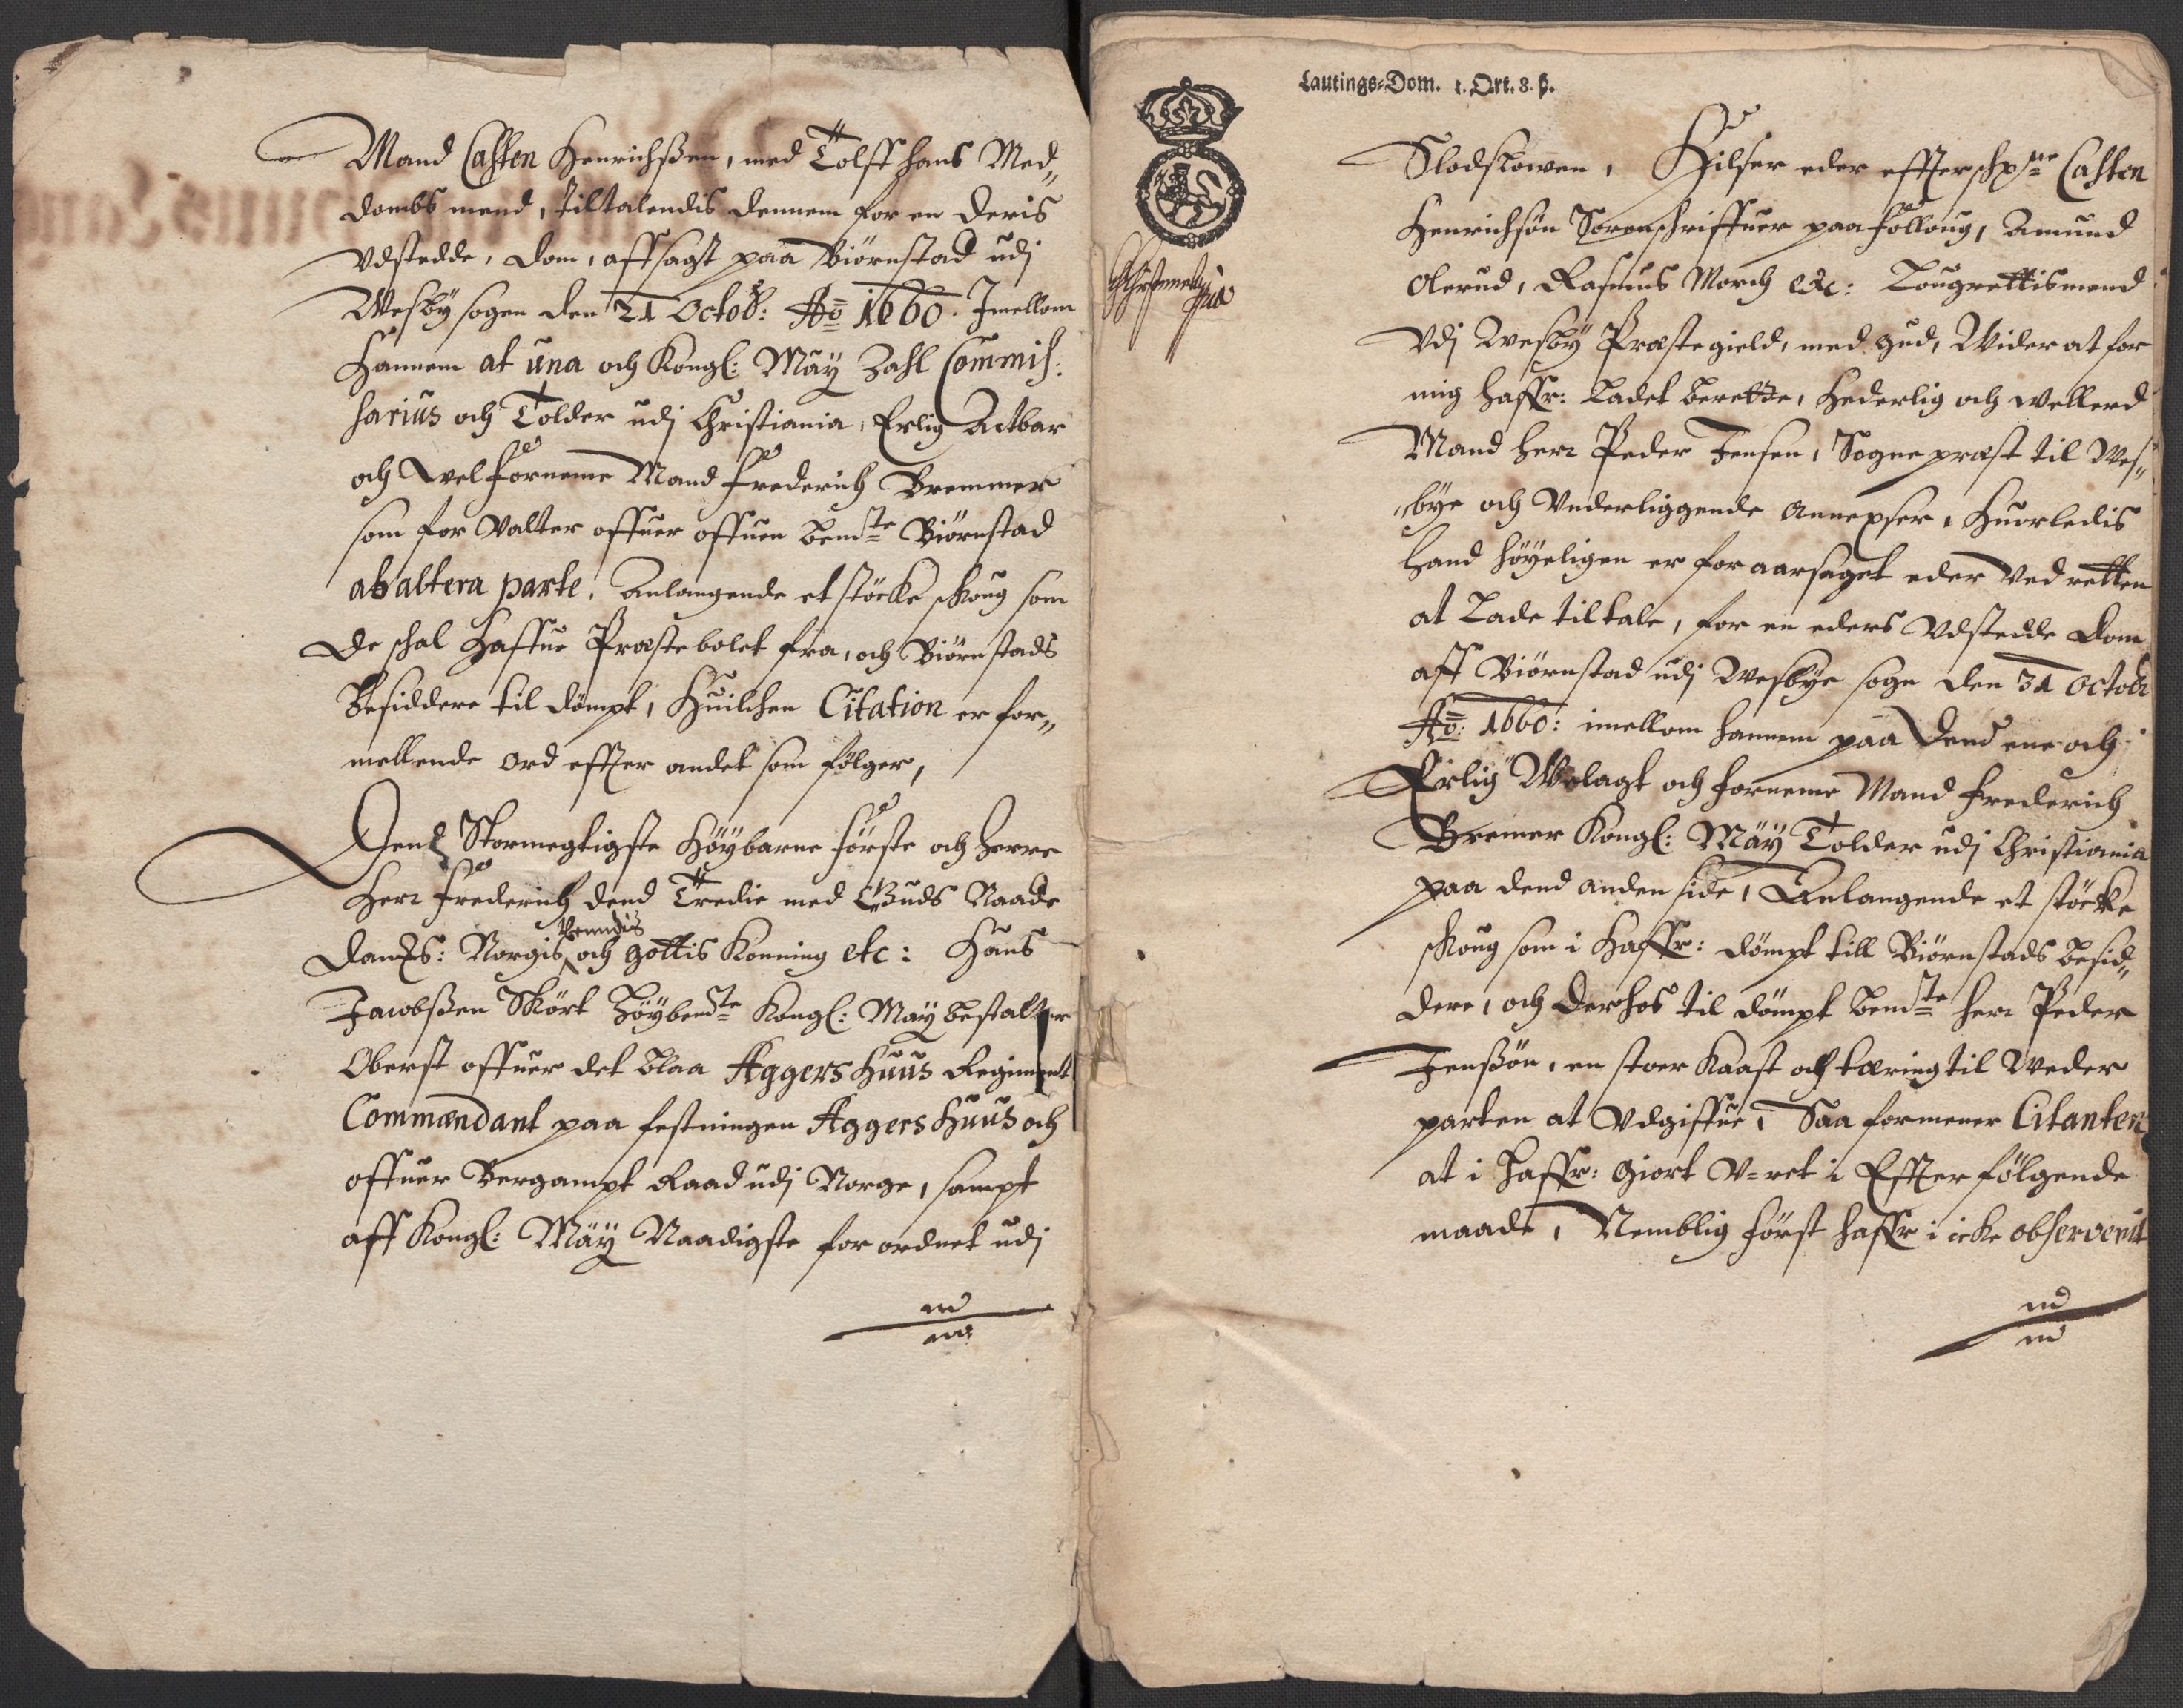 Mand Casten Henrichßen, med Tolff hans Med„
dombs mend, tiltalendis dennem for en deris
Vdstedde, dom, affsagt paa Biörnstad udj
Wesby sogen den 21 Octob: Ao 1660. Imellom
Hannem at una och Kongl: May Zahl Commis:
sarius och Tolder udj Christiania, Erlig Actbar
och Welforneme Mand Frederich Bremmer
som for Valter offuer offuen bemte Biörnstad
ab altera parte, Anlangende et stöcke skoug som
de schal Haffue Præstebolet fra, och Biörnstads
Besiddere til dömpt, Huilchen Citation er for„
mellende ord effter andet som fölger,
Dend Stormegtigste Höybarne Förste och Herre
Herr Frederich dend Tredie med Guds Naade
Danks: Norgis och gottis Konning etc: Hans
Venndis
Jacobßen Skört Höybemte Kongl: May bestalter
Oberst offuer det blaa Aggers Huus Regiment
Commendant paa festningen Aggers Huus och
offuer Bergampt Raad udj Norge, sampt
aff Kongl: Maÿ Naadigste for ordnet udj
Lautings-Dom. 1. Ort. 8. ß.
Slodslowen, Hilser eder effterschrne Casten
Henrichsön Sorenschriffuer paa Folloug, Amund
Olerud, Rasmus Morch etc: Lougrettismend
Vdj Wesby Præstegield, med gud, Wider at for
mig haffr: Ladet berette, Hederlig och wellerd
Mand herr Peder Jensen, Sogne præst til Wes„
„bye och Vnderliggende annexser, Huorledis
Hand höyeligen er for aarsaget eder Ved retten
at Lade tiltale, for en eders Vdstedde Dom
aff Biörnstad udj Wesbye sogn den 31 Octobr
Ao: 1660: imellom hannem paa Dend ene och
Erlig Welagt och forneme Mand Frederich
Bremer Kongl: Maÿ Tolder udj Christiania
paa dend anden side, Anlangende et stöcke
skoug som i Haffr: dömpt till Biörnstads besid„
dere, och derhos til dömpt bemte herr Peder
Jensßön, en stoer Kaast och tæring til Weder
parten at Vdgiffue, Saa formener Citanten
at i haffr: giort V-ret i Effterfölgende
maade, Nemblig först haffr i icke observerit